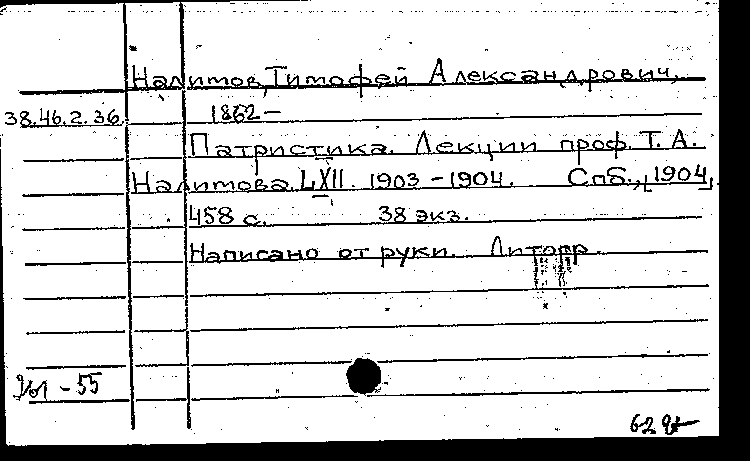 Налимов, Тимофей Александрович,
38.46.2.36. 1862 –
Патристика. Лекции проф. Т. А.
Налимова. LXII. 1903 – 1904. Спб., 1904,
458 с. 38 экз.
Написано от руки. Литогр.
– 55
62